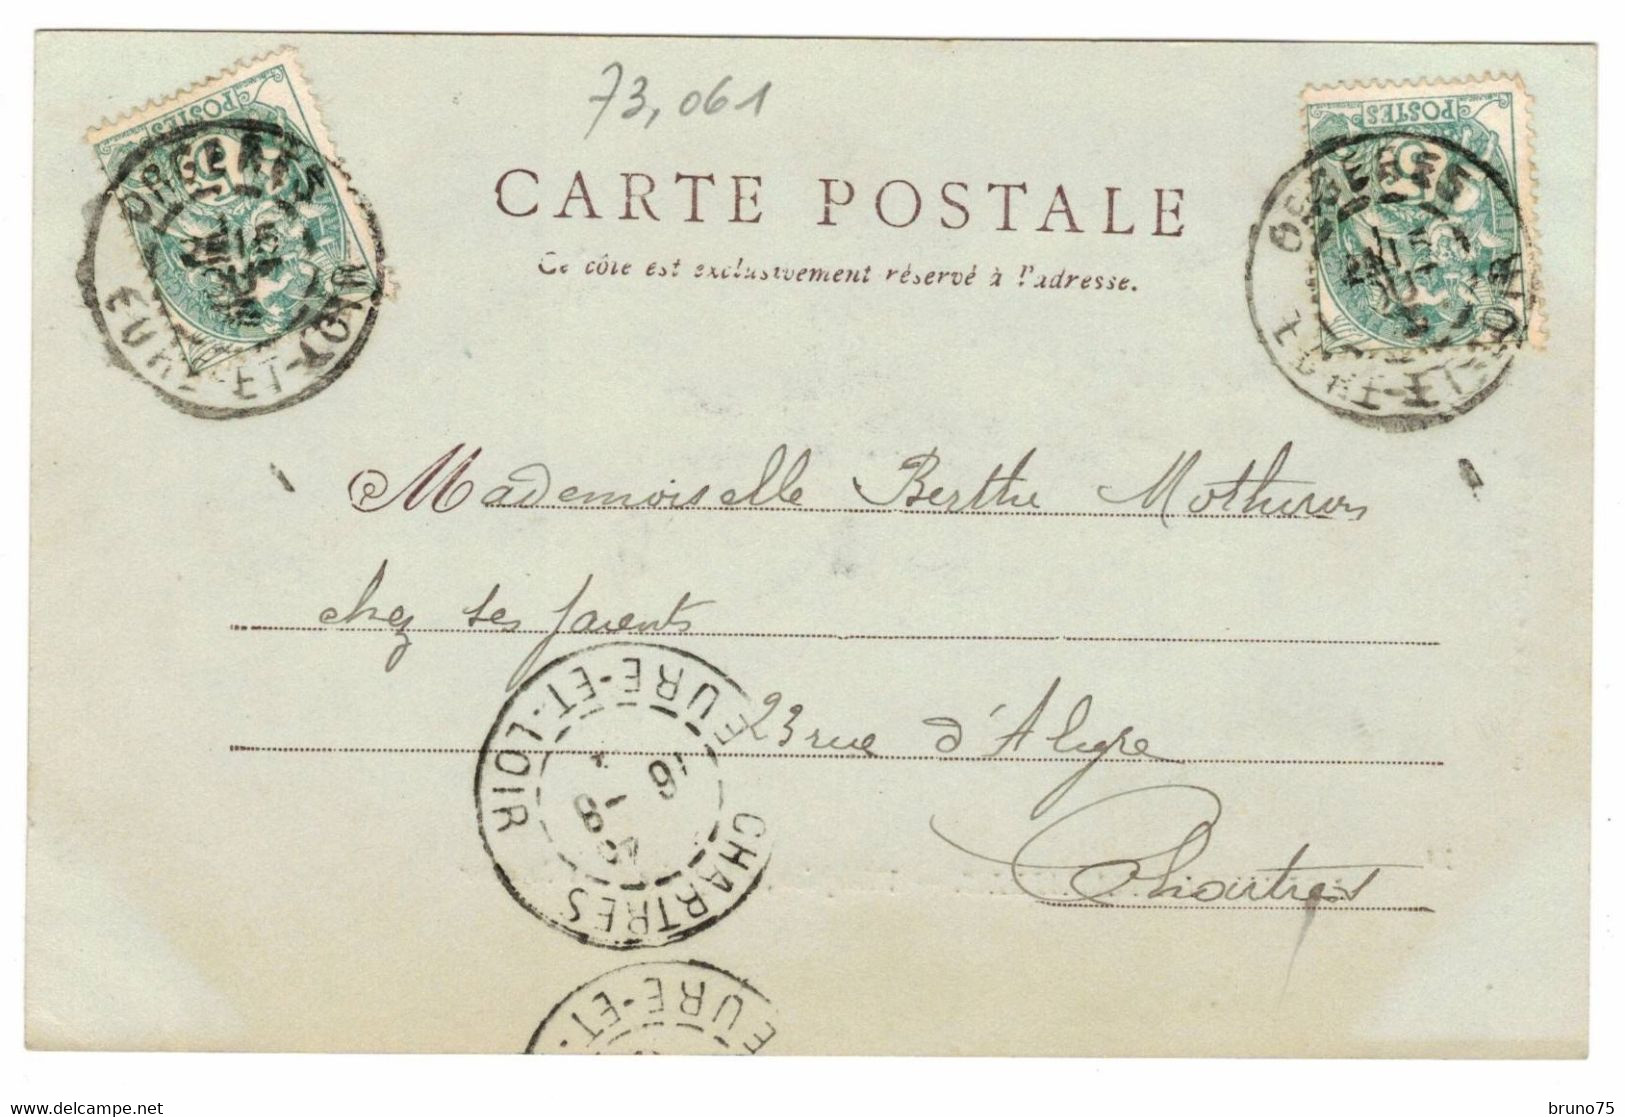 73,061
POSTES
5
POSTES
5
ORGERES
EURE-ET-LOIR
ORGERES
EURE-ET-LOIR
CARTE POSTALE
Ce côté est exclusivement réservé à l'adresse.
Mademoiselle Berthe
chez ses parents
23 rue d'Aligre
Chartres
CHARTRES
EURE-ET-LOIR
EURE-ET-
bruno75